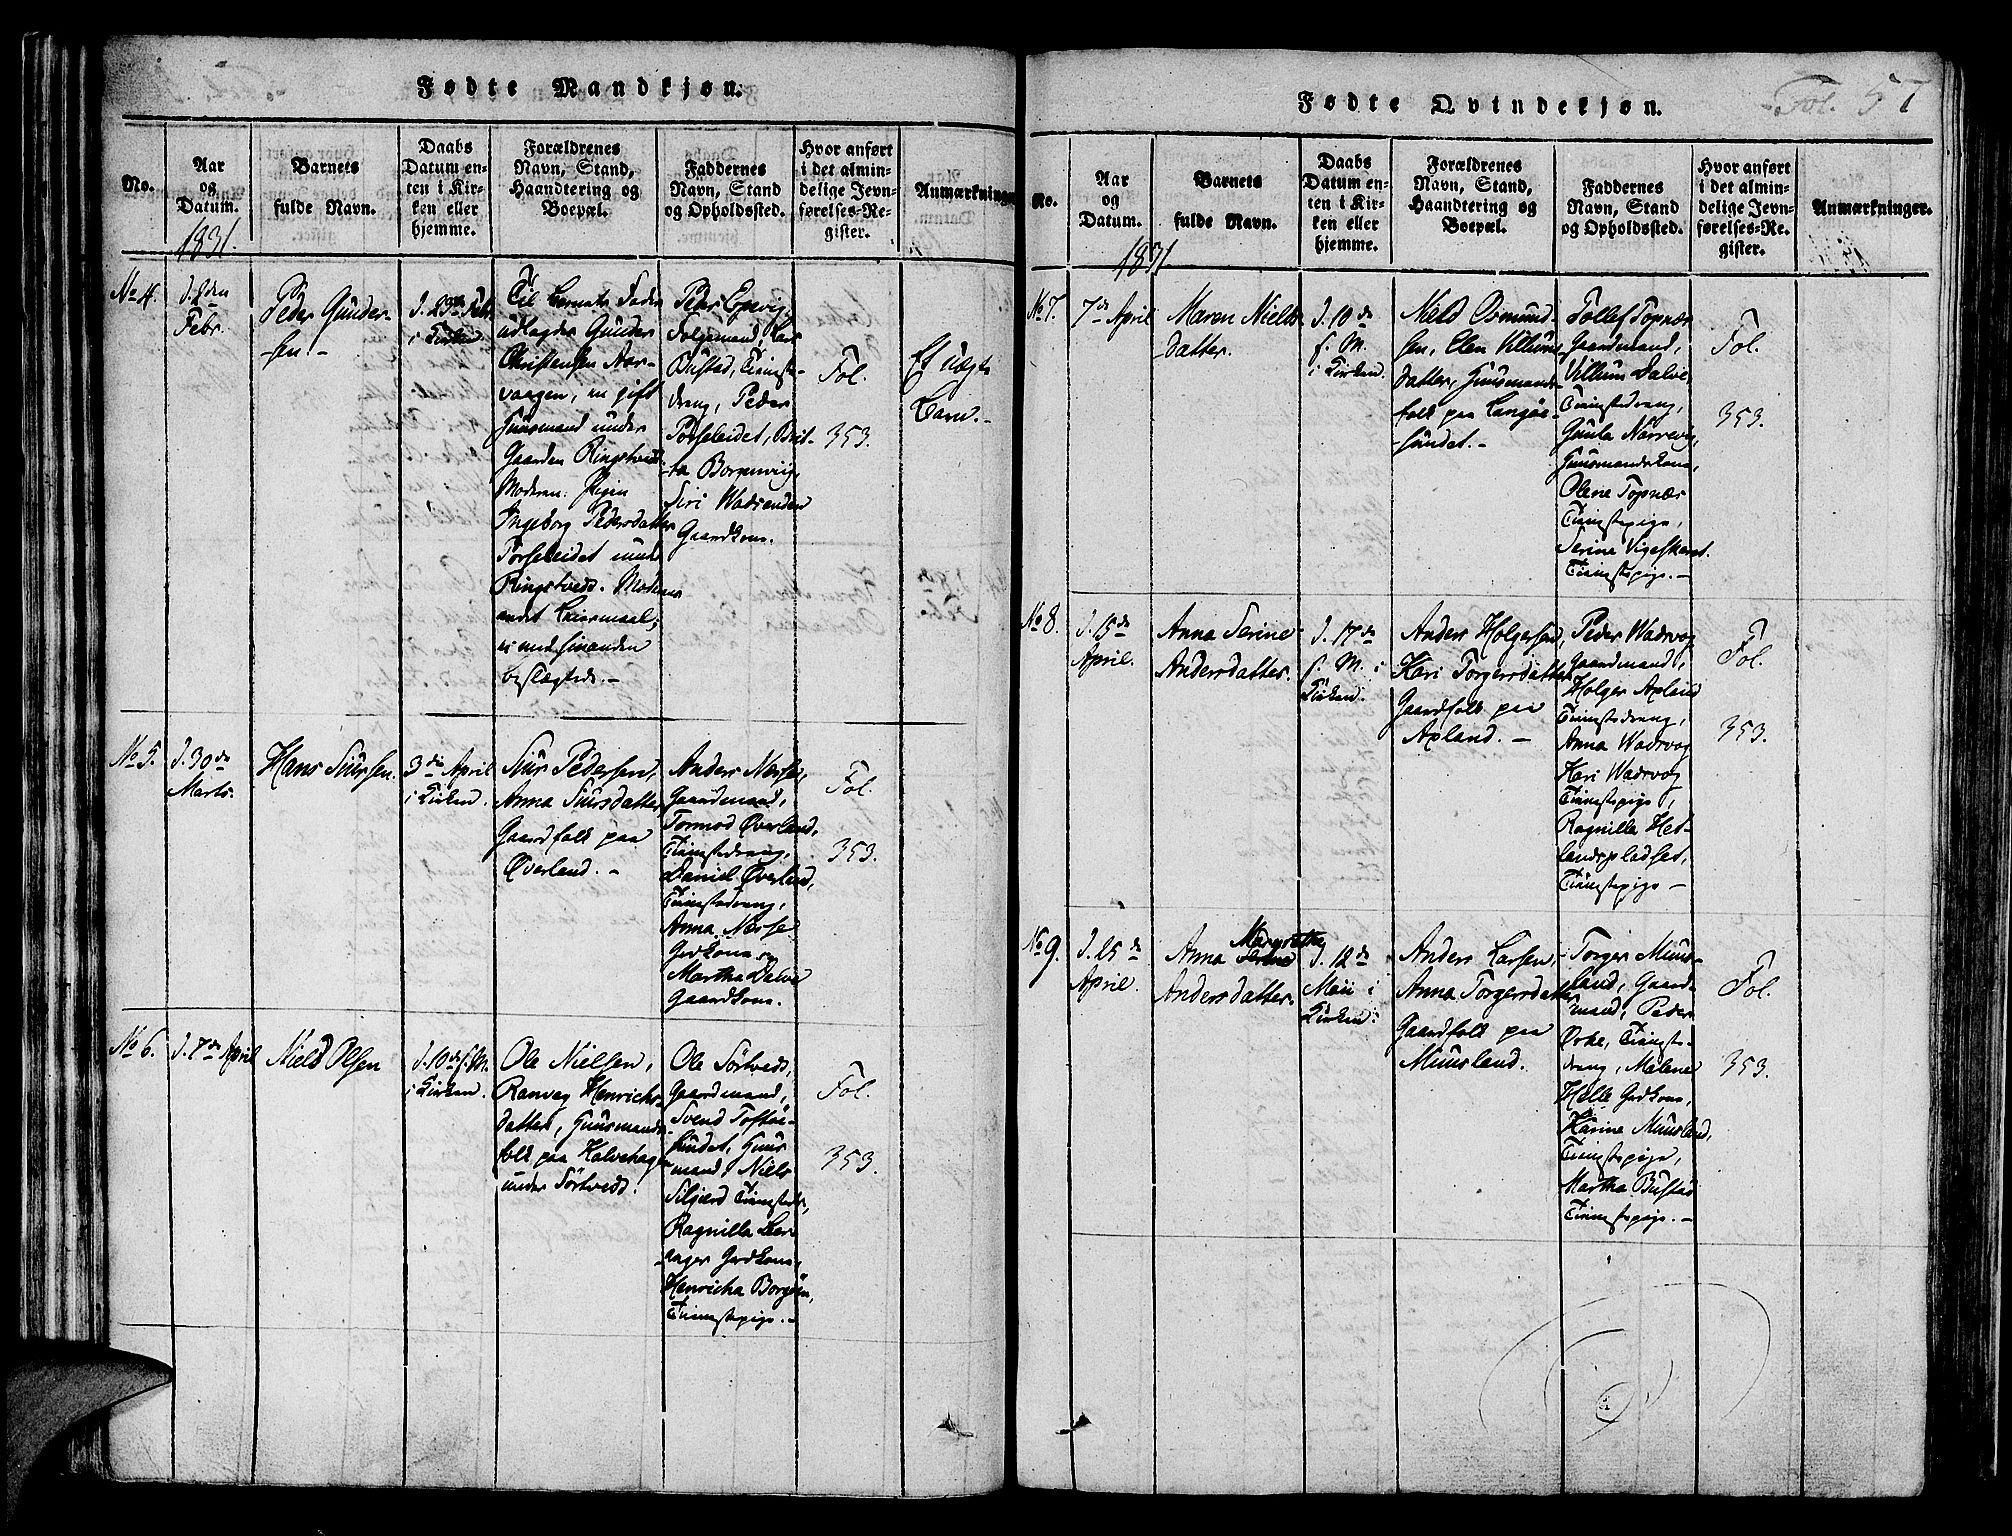 Fødte Mandkjøn.
No.
Aar
og
Datum.
Barnets
fulde Navn.
Daabs
Datum en-
ten i Kir-
ken eller
hjemme.
Forældrenes
Navn, Stand,
Haandtering og
Boepæl.
Faddernes
Navn, Stand
og Opholdssted.
Hvor anført
i det almin-
delige Jevn-
førelses-Re-
gister.
Anmærkninger
1831.
No 4.
Febr.
Peder Gunder-
sen -
i Kirken
Til Barnets Fader
udlagdes Gunder
Christensen Aar-
vaagen, en gift
Huusmand under
Gaarden Ringstvedt
Moderen: Pigen
Ingeborg Pedersdatter
Torseleidet under
Ringstvedt. Moderens
andet Leiermaal,
ei med Manden
beslægtede. -
Peder
Bustad, Tieneste-
dreng, Peder
Torseleidet, Brit-
ta Borgenvig,
Siri
Gaardkone.
Fol.
353.
Et uægte
Barn. -
No 5.
d. 30de
Marts.
Hans Siursen.
3die April
i Kirken.
Siur Pedersen,
Anna Siursdatter,
Gaardfolk paa
Øverland. -
Anders Nærse,
Gaardmand,
Tormod Øverland,
Tienestedreng,
Daniel Øverland,
Tienestedreng,
Anna Nærse
Grdkone,
Martha Dalve
Gaardkone.
Fol.
353.
No 6.
d. 7de April
Niels Olsen
d. 10de f. M.
i Kirken.
Ole Nielsen,
Ranveg Henrichs-
datter, Huusmands-
folk paa Halvehagen
under Sörtvedt.
Ole Sörtvedt,
Gaardmand,
Svend Toftöe-
sundet, Huus-
mand, Niels
Tieneste
Ragnilla
Grdkone,
Henricha Borgöen,
Tienestepige. -
Fol.
353.
Fødte Qvindekjøn.
Fol. 57
No.
Aar
og
Datum.
Barnets
fulde Navn.
Daabs
Datum en-
ten i Kir-
ken eller
hjemme.
Forældrenes
Navn, Stand,
Haandtering og
Boepæl.
Faddernes
Navn, Stand
og Opholdssted.
Hvor anført
i det almin-
delige Jevn-
førelses-Re-
gister.
Anmærkninger.
1831
No 7.
7de April
Maren Niels-
datter.
d. 10de
f. M.
i Kirken.
Niels Osmund-
sen, Elen Villums-
datter, Huusmands-
folk paa Langöe-
sundet. -
Tollef Topnær
Gaardmand,
Villum Dalve
Tienestedreng,
Gunla Nörrevog
Huusmandskone,
Olene Topnær
Tienestepige,
Serine Vigeskaret
Tienestepige. -
Fol.
353.
No 8.
d. 15de
April.
Anna Serine
Andersdatter.
d. 17de
f. M. i
Kirken.
Anders Holgersen,
Kari Torgersdatter
Gaardfolk paa
Apland. -
Peder Wadvog
Gaardmand,
Holger Apland
Tienestedreng,
Anna Wadvog
Kari Wadvog
Tienestepige,
Ragnilla Het-
landspladset,
Tienestepige -
Fol.
353.
No 9.
d. 25de
April.
Margrethe
Anna Serine
Andersdatter.
d. 12de
Maii i
Kirken.
Anders Larsen,
Anna Torgersdatter
Gaardfolk paa
Muusland.
Torger Muus-
land, Gaard-
mand, Peder
Orke, Tieneste-
dreng, Malene
Helle Grdkone,
Karine Muusland,
Tienestepige,
Martha Bustad
Tienestepige. -
Fol.
353.